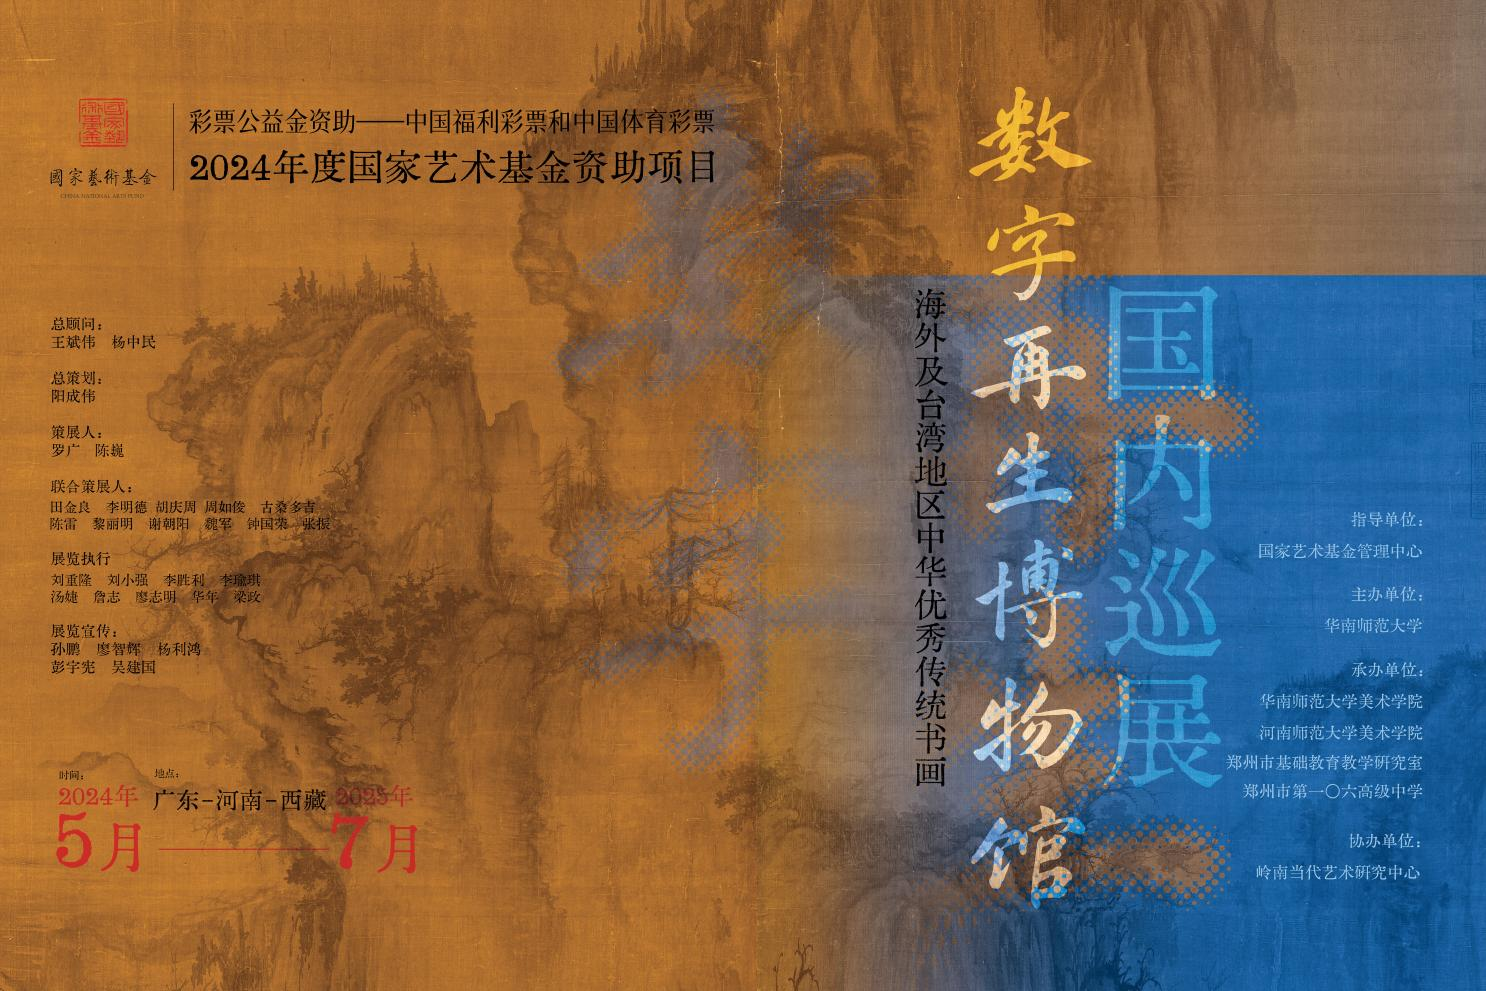 國家藝術基金
國家藝術基金
CHINA NATIONAL ARTS FUND
彩票公益金资助——中国福利彩票和中国体育彩票
2024年度国家艺术基金资助项目
数字再生博物馆
海外及台湾地区中华优秀传统书画
国内巡展
总顾问：
王斌伟 杨中民
总策划：
阳成伟
策展人：
罗广 陈巍
联合策展人：
田金良 李明德 胡庆周 周如俊 古桑多吉
陈雷 黎丽明 谢朝阳 魏军 钟国荣 张振
展览执行
刘重隆 刘小强 李胜利 李瑜琪
汤婕 詹志 廖志明 华年 梁政
展览宣传：
孙鹏 廖智辉 杨利鸿
彭宇宪 吴建国
时间：
地点：
2024年
广东-河南-西藏
2025年
5月
7月
指导单位：
国家艺术基金管理中心
主办单位：
华南师范大学
承办单位：
华南师范大学美术学院
河南师范大学美术学院
郑州市基础教育教学研究室
郑州市第一〇六高级中学
协办单位：
岭南当代艺术研究中心